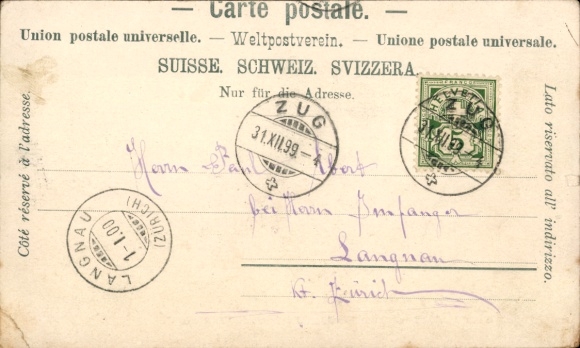 — Carte postale. —
Union postale universelle. — Weltpostverein. — Unione postale universale.
SUISSE. SCHWEIZ. SVIZZERA.
Nur für die Adresse.
Côté réservé à l'adresse.
Lato riservato all' indirizzo.
FRANCO
HELVETIA
5
ZUG
31.XII.99.-4
ZUG
31.XII.99.-4
LANGNAU
(ZÜRICH)
1-1.00
Herrn Paul
bei Herrn
Langnau
Kt. Zürich